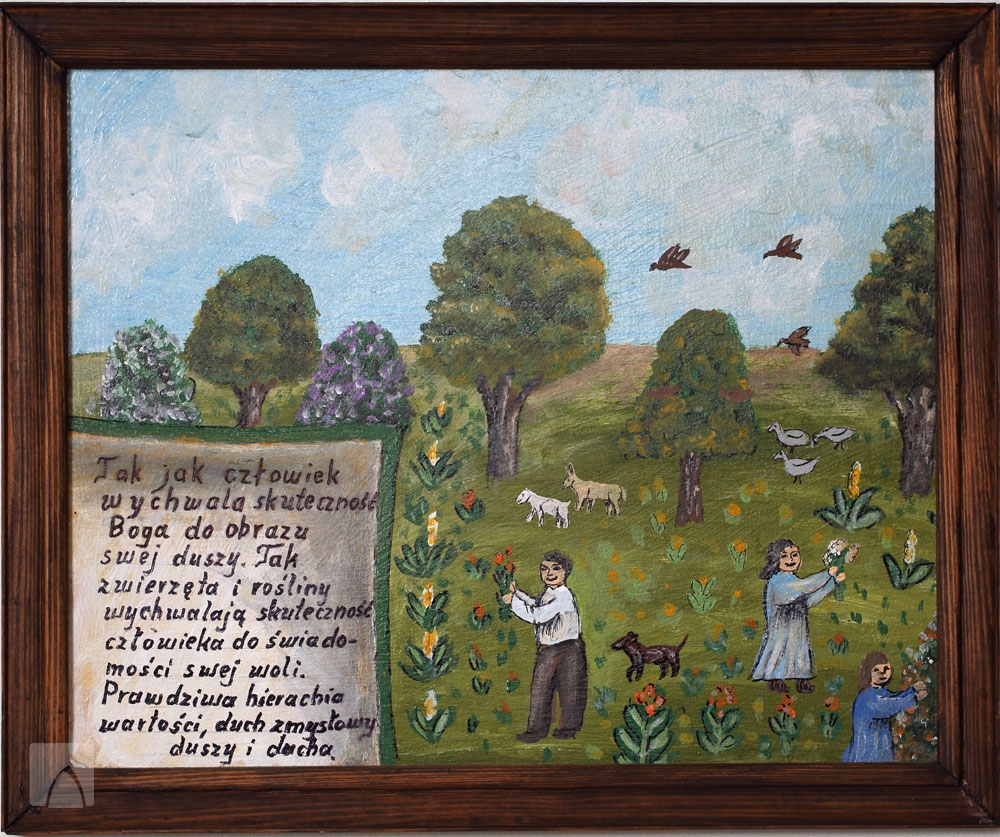 Tak jak człowiek
wychwala skuteczność
Boga do obrazu
swej duszy. Tak
zwierzęta i rośliny
wychwalają skuteczność
człowieka do świado-
mości swej woli.
Prawdziwa hierachia
wartości, duch zmysłowy
duszy i ducha